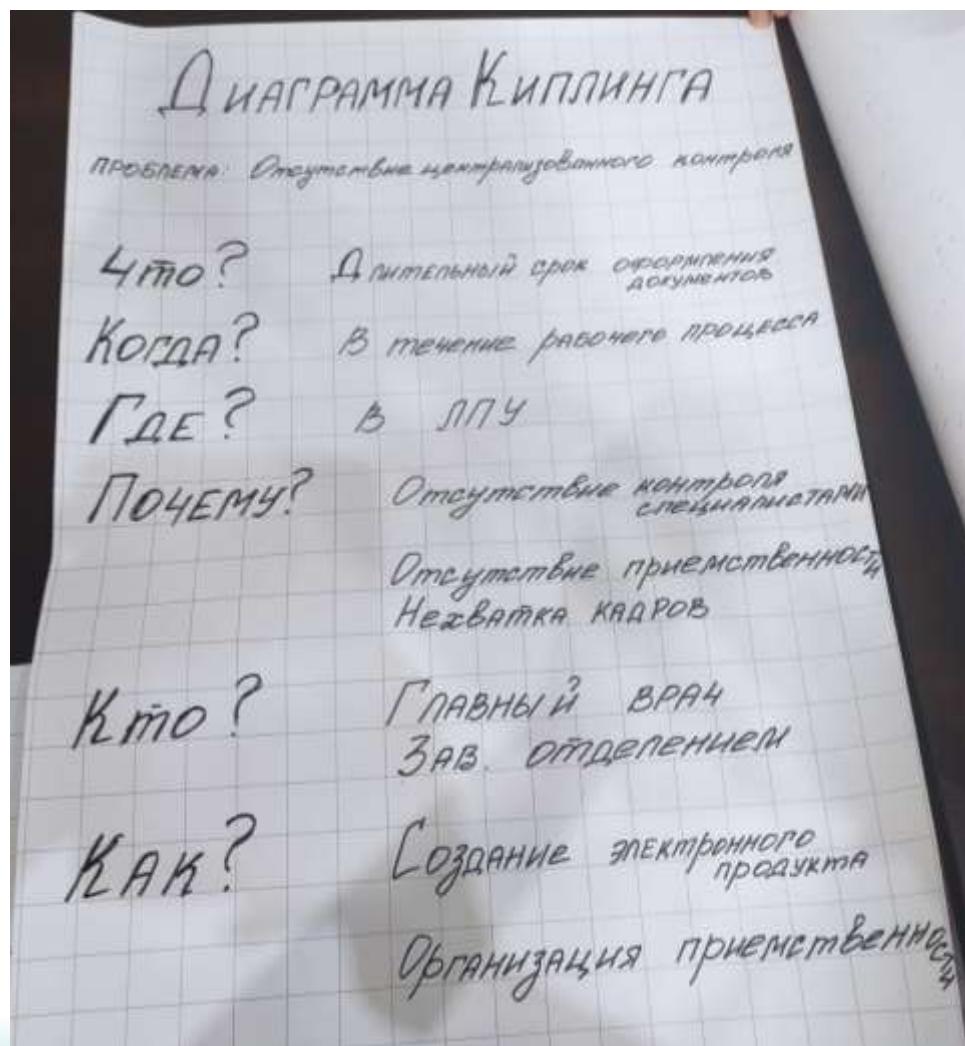 Диаграмма Киплинга
Проблема: Отсутствие централизованного контроля
Что? Длительный срок оформления
документов
Когда? В течение рабочего процесса
Где? В ЛПУ
Почему? Отсутствие контроля
специалистами
Отсутствие приемственности
Нехватка кадров
Кто? Главный врач
Зав. отделением
Как? Создание электронного
продукта
Организация приемственности